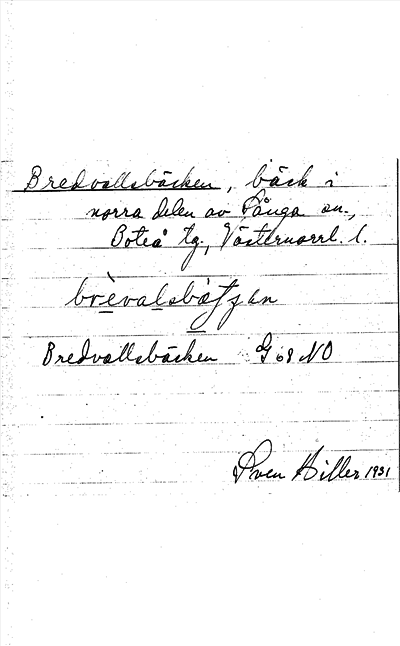 Bredvallsbäcken, bäck i
norra delen av Långa sn.,
Boteå tg., Västernorrl. l.
Bredvallsbäcken G 68 NO
Sven Hiller 1931